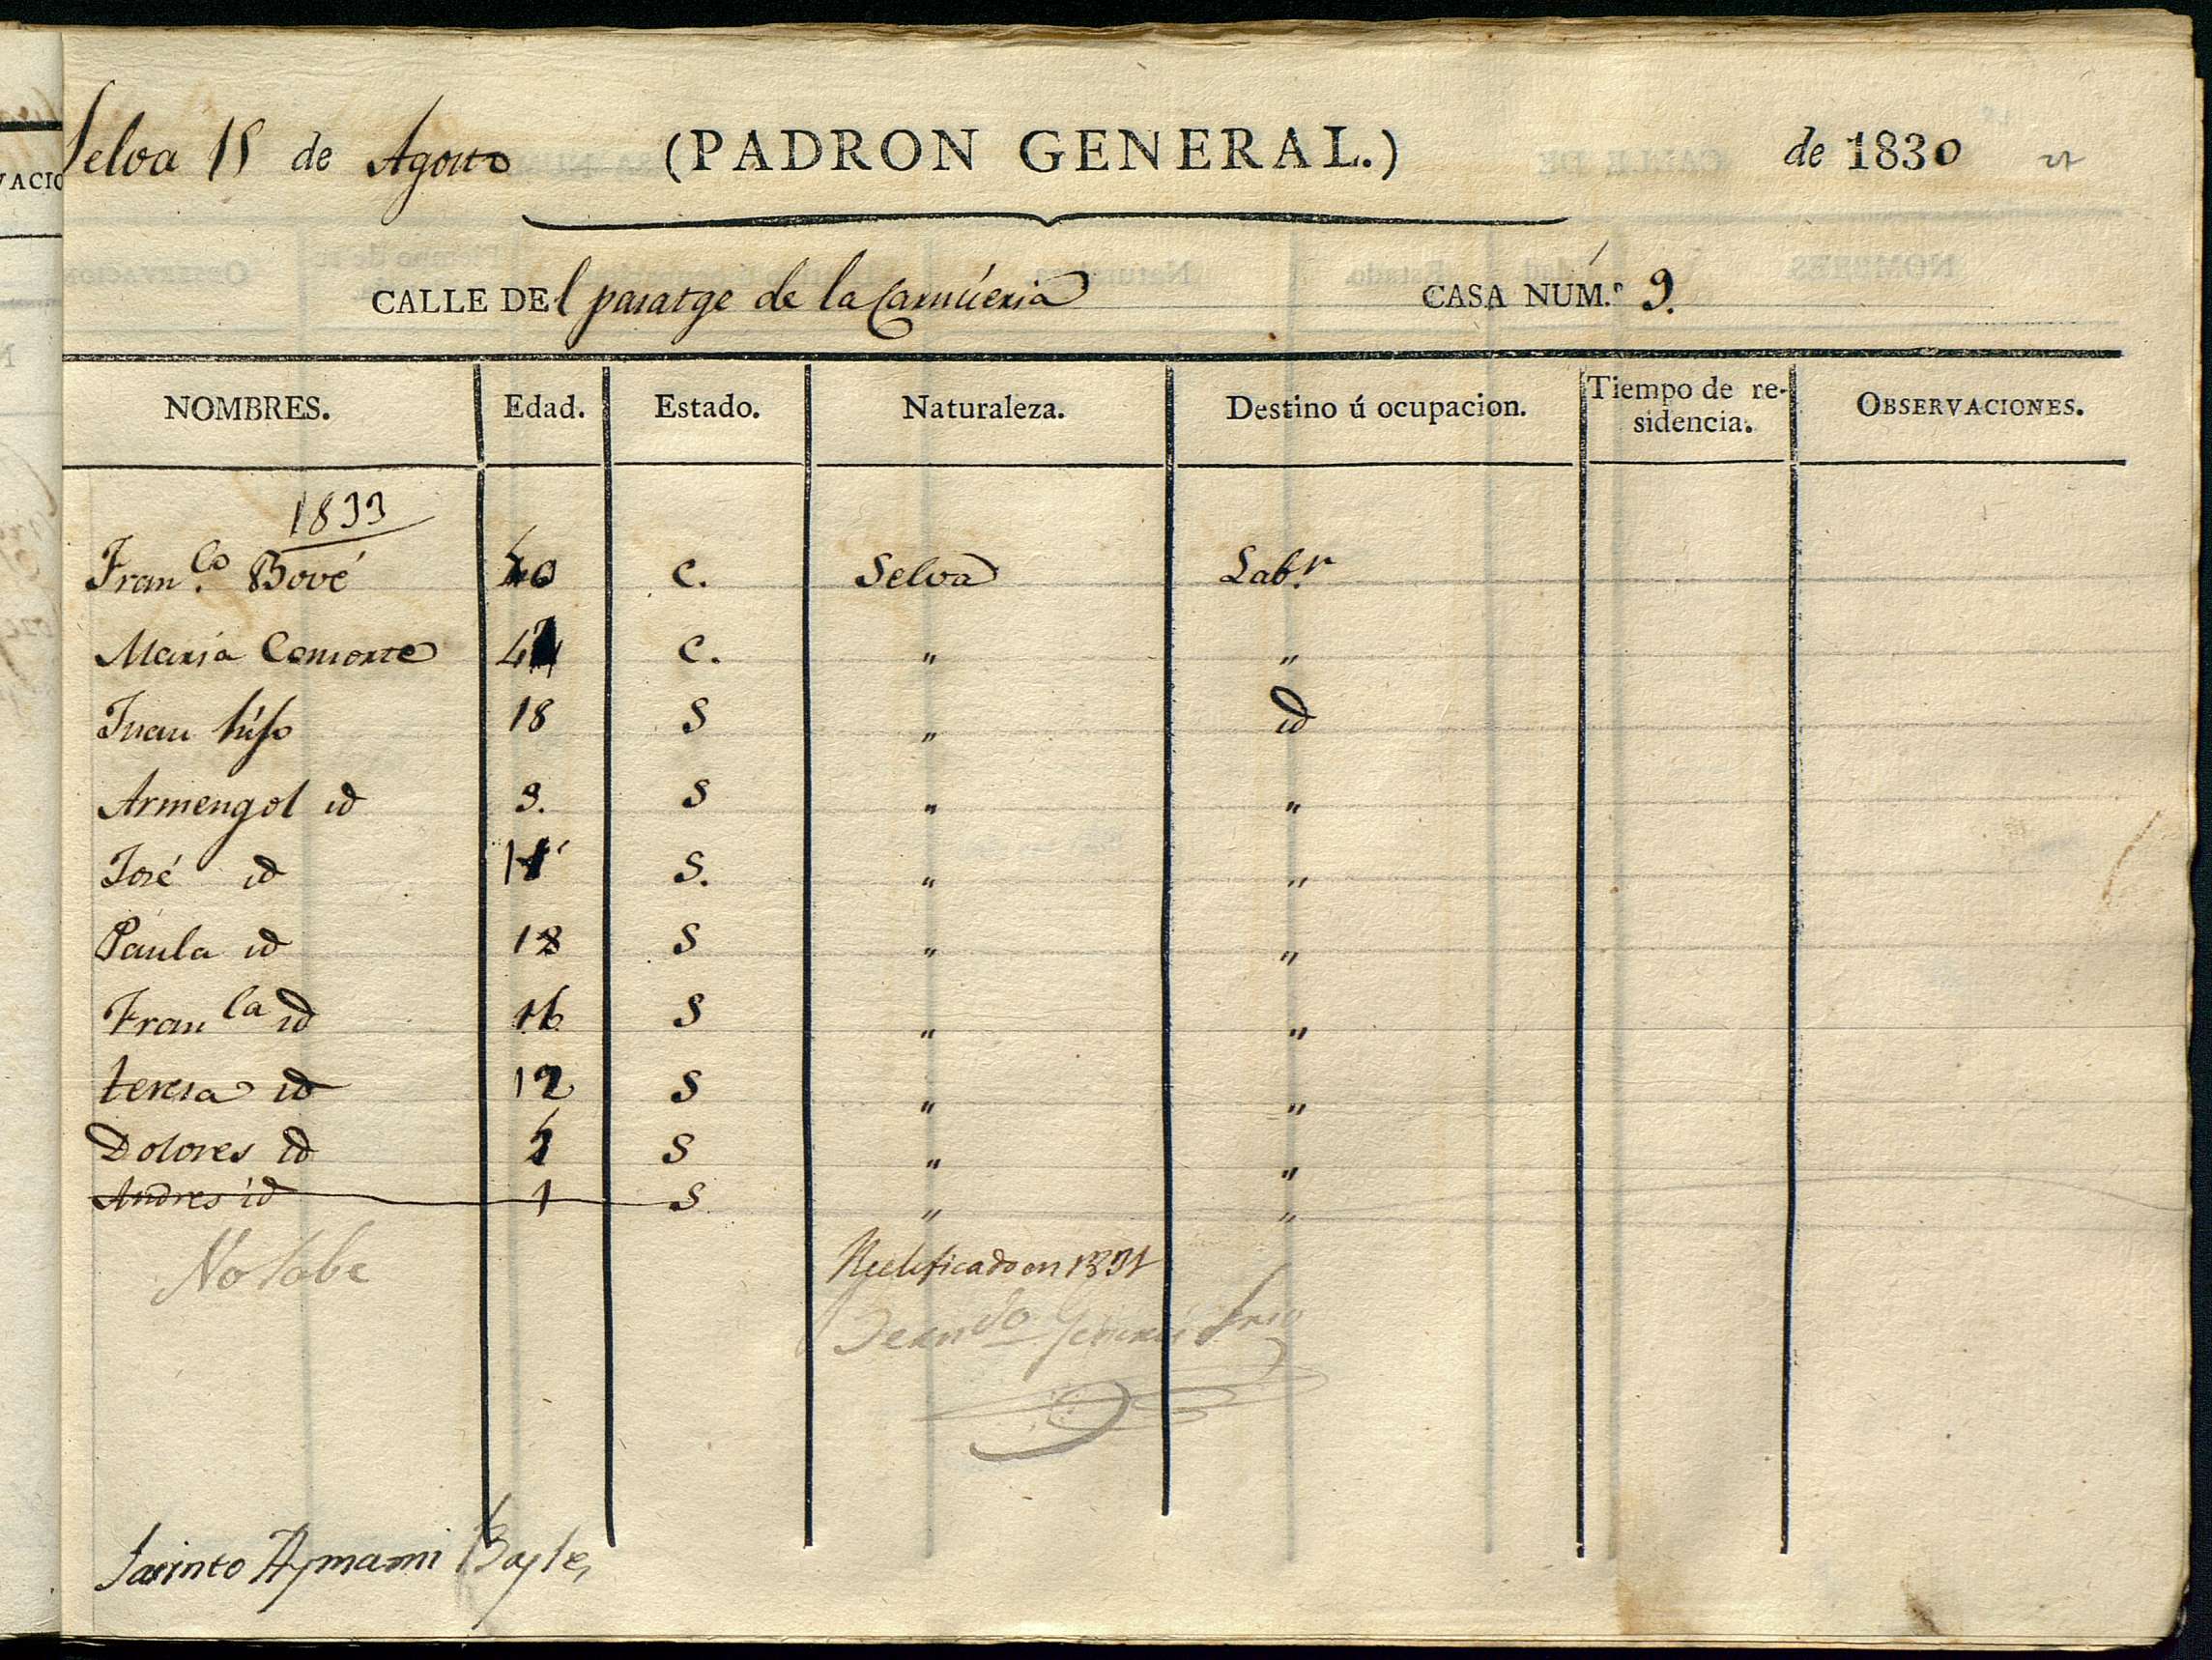 Selva 15 de Agosto (PADRON GENERAL.) de 1830
CALLE DEl pasatge de la Carnicería CASA NÚM.º 9.
NOMBRES. Edad. Estado. Naturaleza. Destino ú ocupacion. Tiempo de residencia. OBSERVACIONES.
1833
Fran.co Bové 40 C. Selva Lab.r
Maria Consorte C. " "
Juan hijo 18 S " id
Armengol id 9. S " "
José id S. " "
Paula id 18 S " "
Fran ca id 16 S " "
teresa id 12 S " "
Dolores id S " "
Andres id 1 S " "
Rectificado en 1831
Jacinto Aymami Bayle